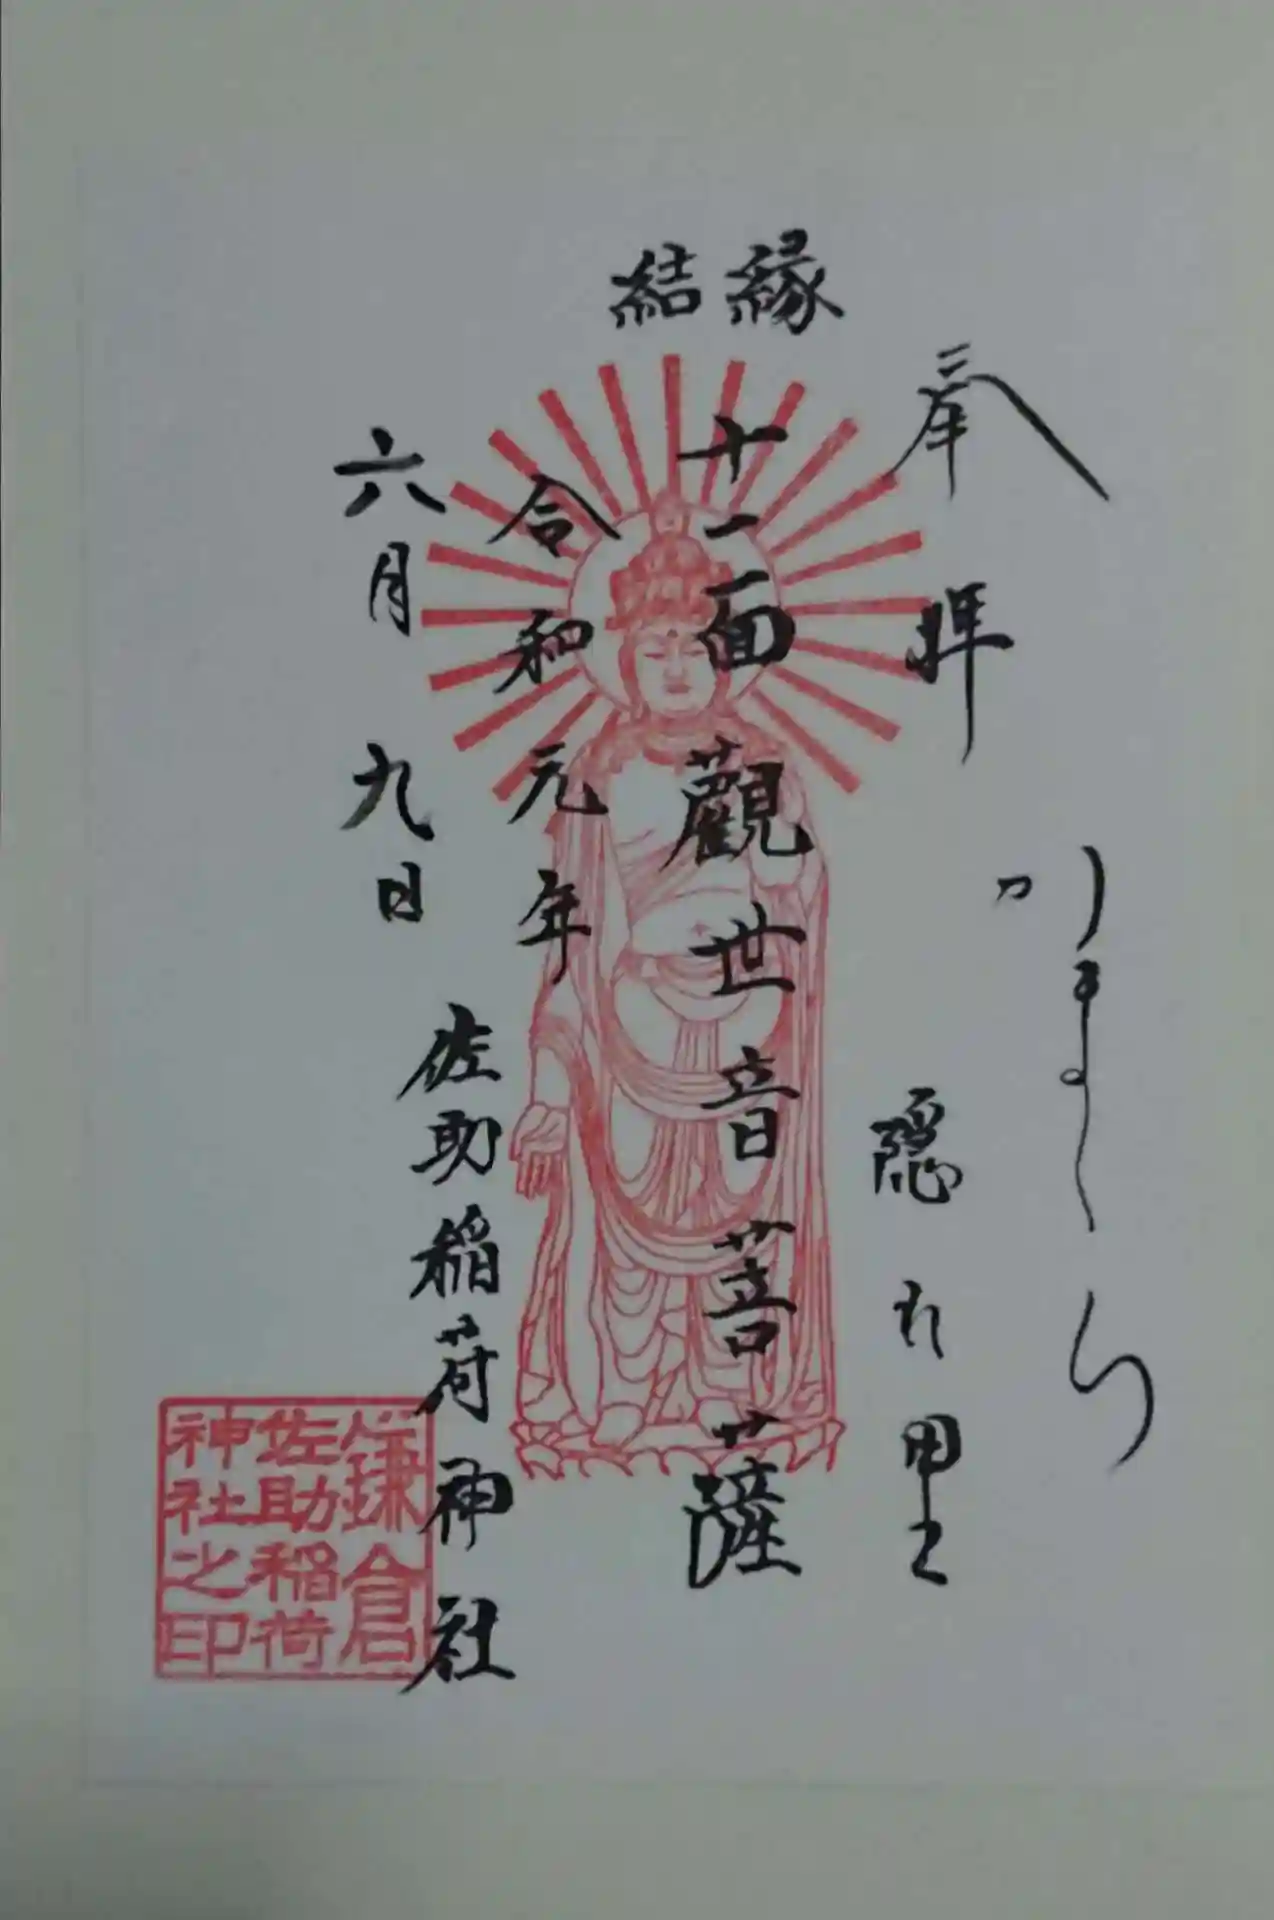 縁結
奉拝
かまくら
隠れ里
十一面觀世音菩薩
令和元年
六月九日
佐助稲荷神社
鎌倉
佐助稲荷
神社之印